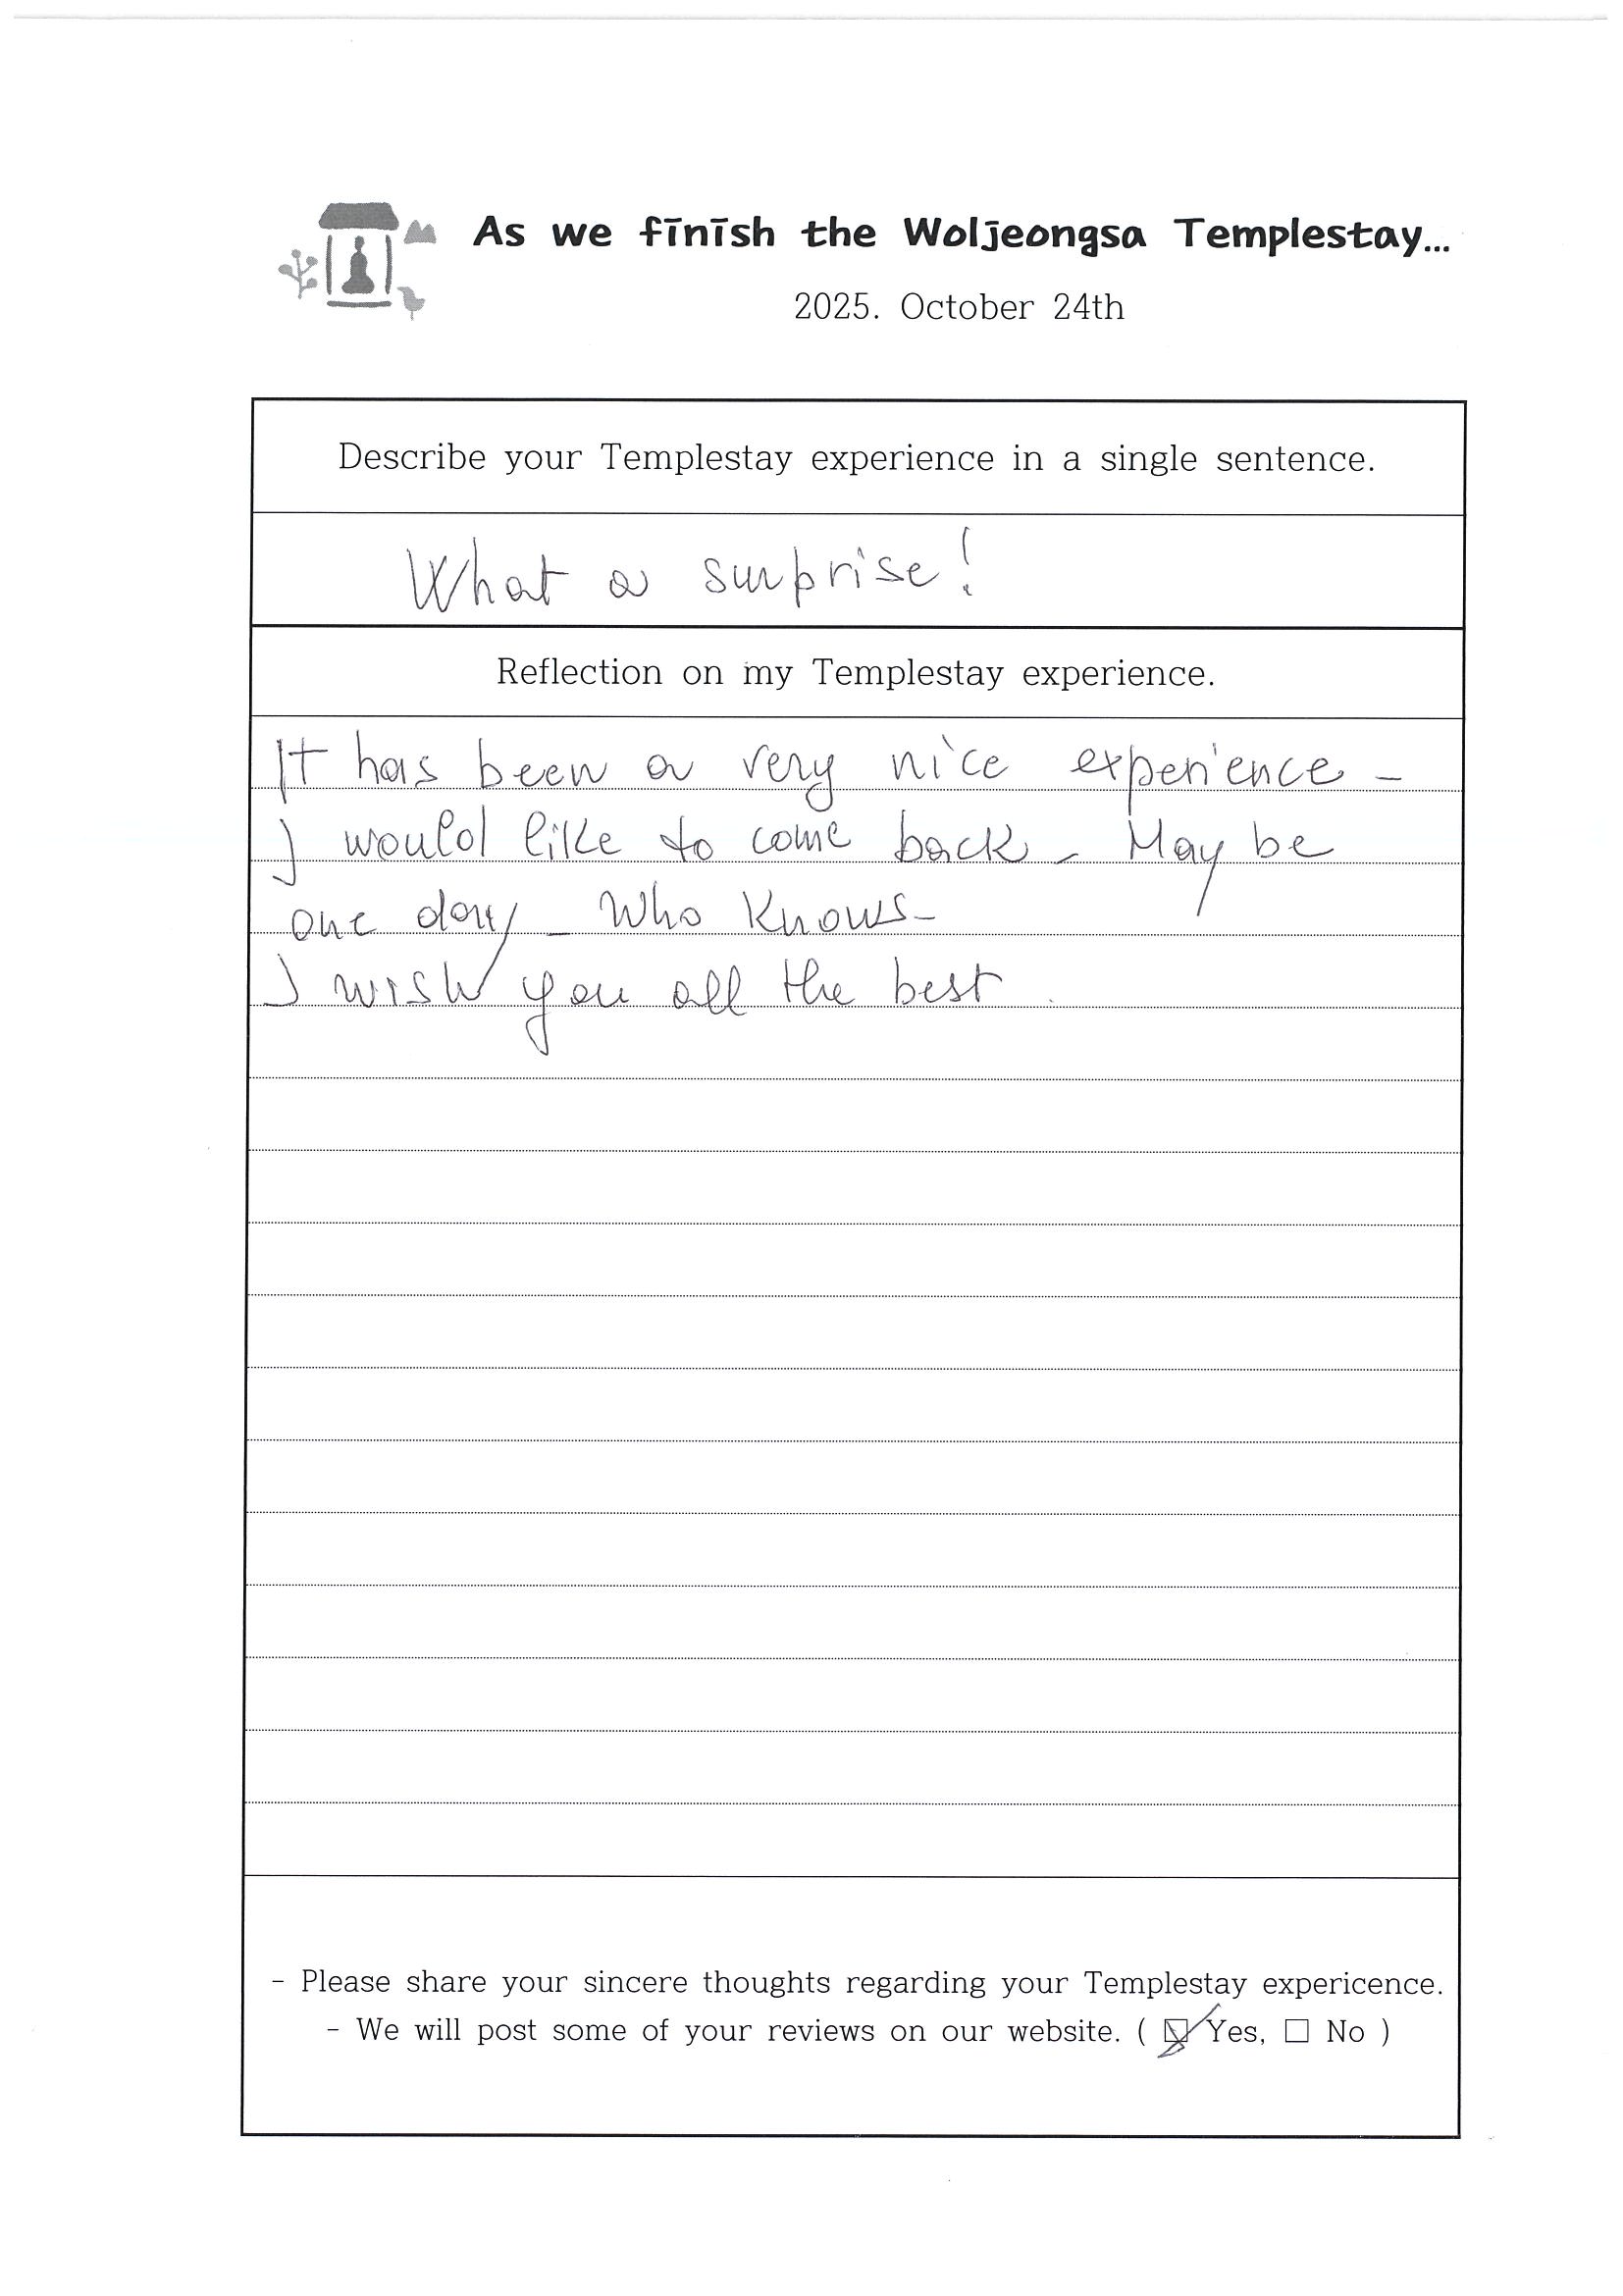 As we finish the Woljeongsa Templestay...
2025. October 24th
Describe your Templestay experience in a single sentence.
What a surprise!
Reflection on my Templestay experience.
It has been a very nice experience -
I would like to come back - May be
one day - Who knows -
I wish you all the best.
- Please share your sincere thoughts regarding your Templestay expericence.
- We will post some of your reviews on our website. ( ☑ Yes, ☐ No )